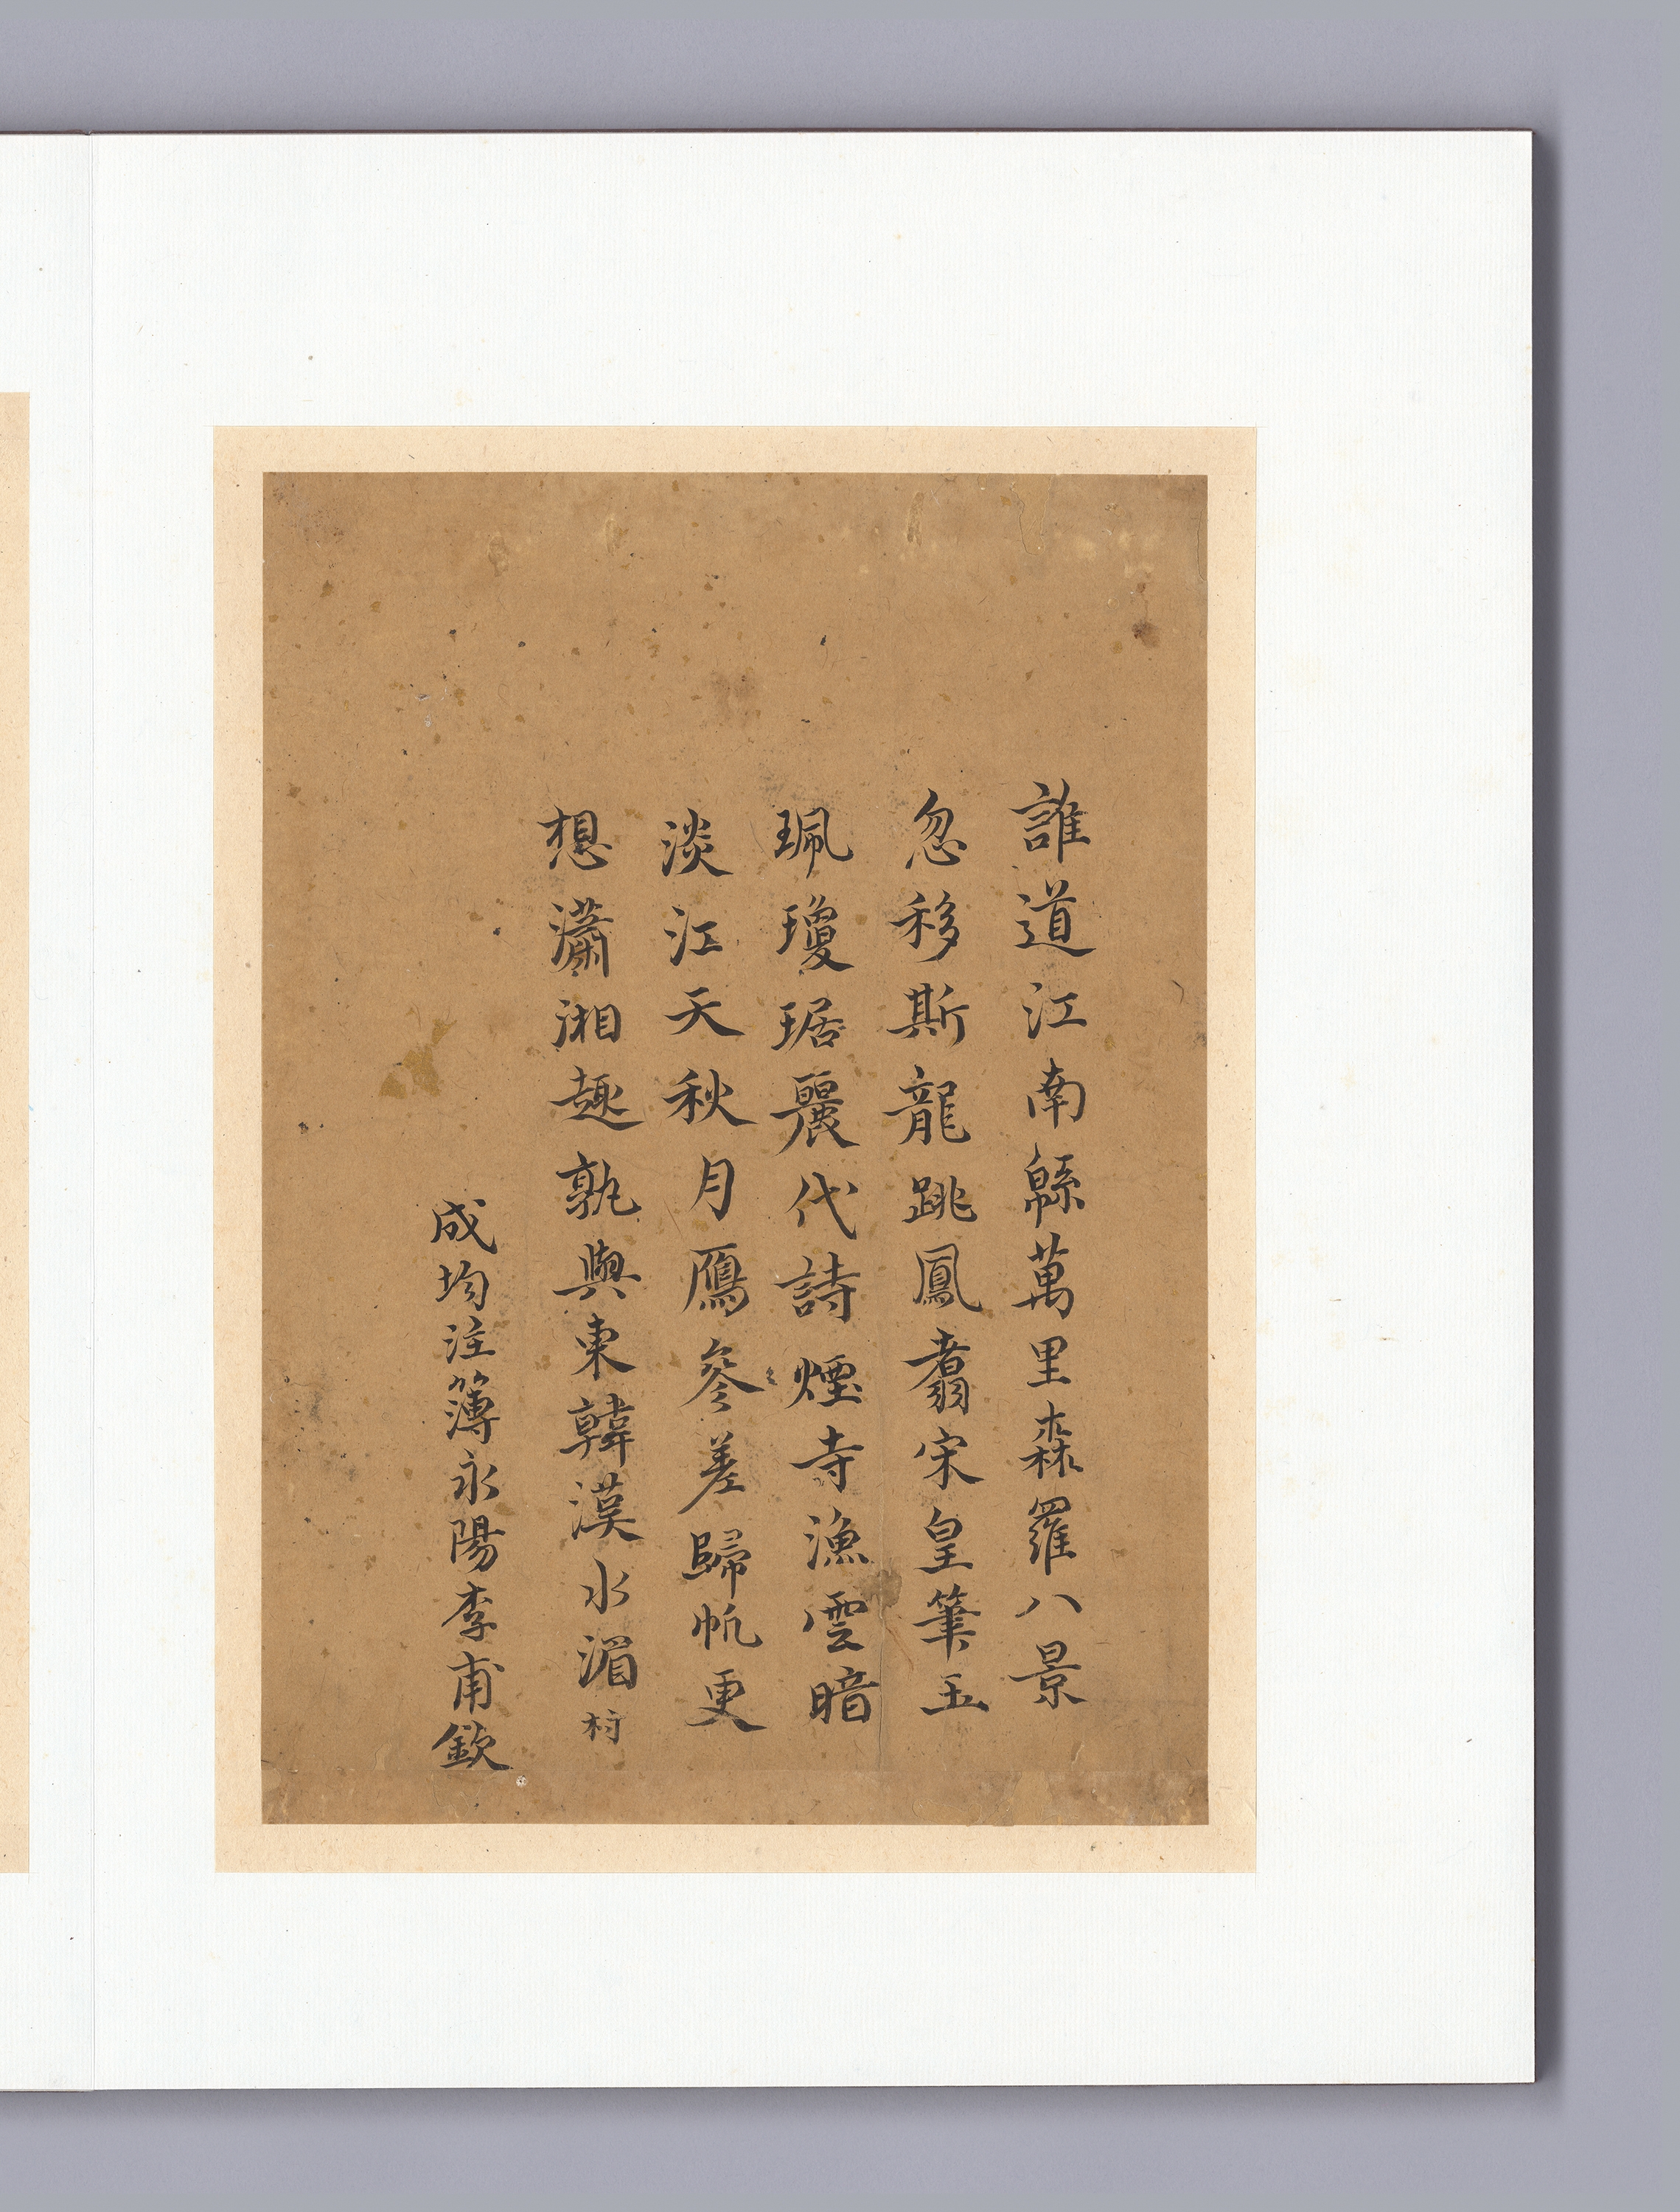 誰道江南緜萬里森羅八景
忽移斯龍跳鳳翥宋皇筆玉
珮瓊琚麗代詩煙寺漁雲暗
淡江天秋月鴈參差歸帆更
想瀟湘趣孰與東韓漢水湄村
成均注簿永陽李甫欽